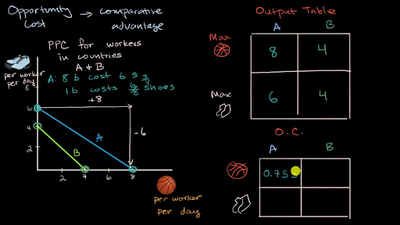 Opportunity Cost → comparative advantage
PPC for workers
in countries
A + B
per worker
per day
A: 8 b cost 6 s
1 b costs 6/8 shoes
+8
6
4
2
-6
A
B
2
4
6
8
per worker
per day
Output Table
A
B
Max
8
4
Max
6
4
O.C.
A
B
0.75 s